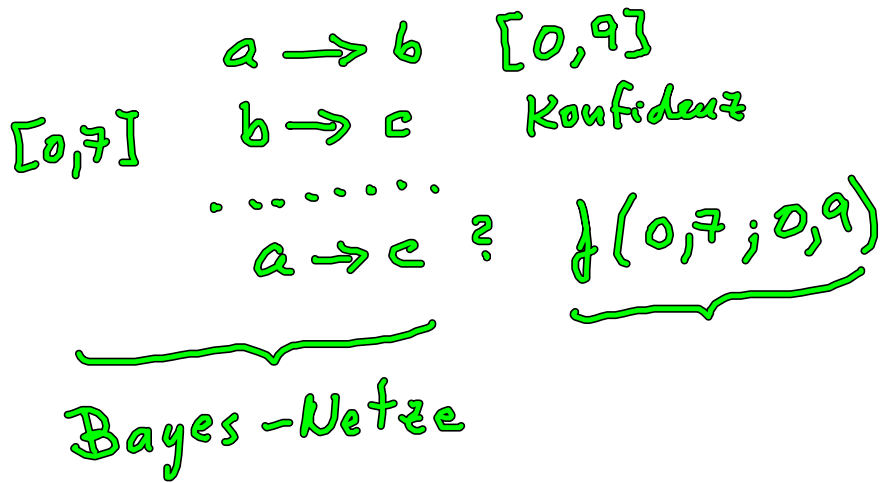 a → b [0,9]
[0,7] b → c Konfidenz
a → c ? f(0,7 ; 0,9)
Bayes-Netze